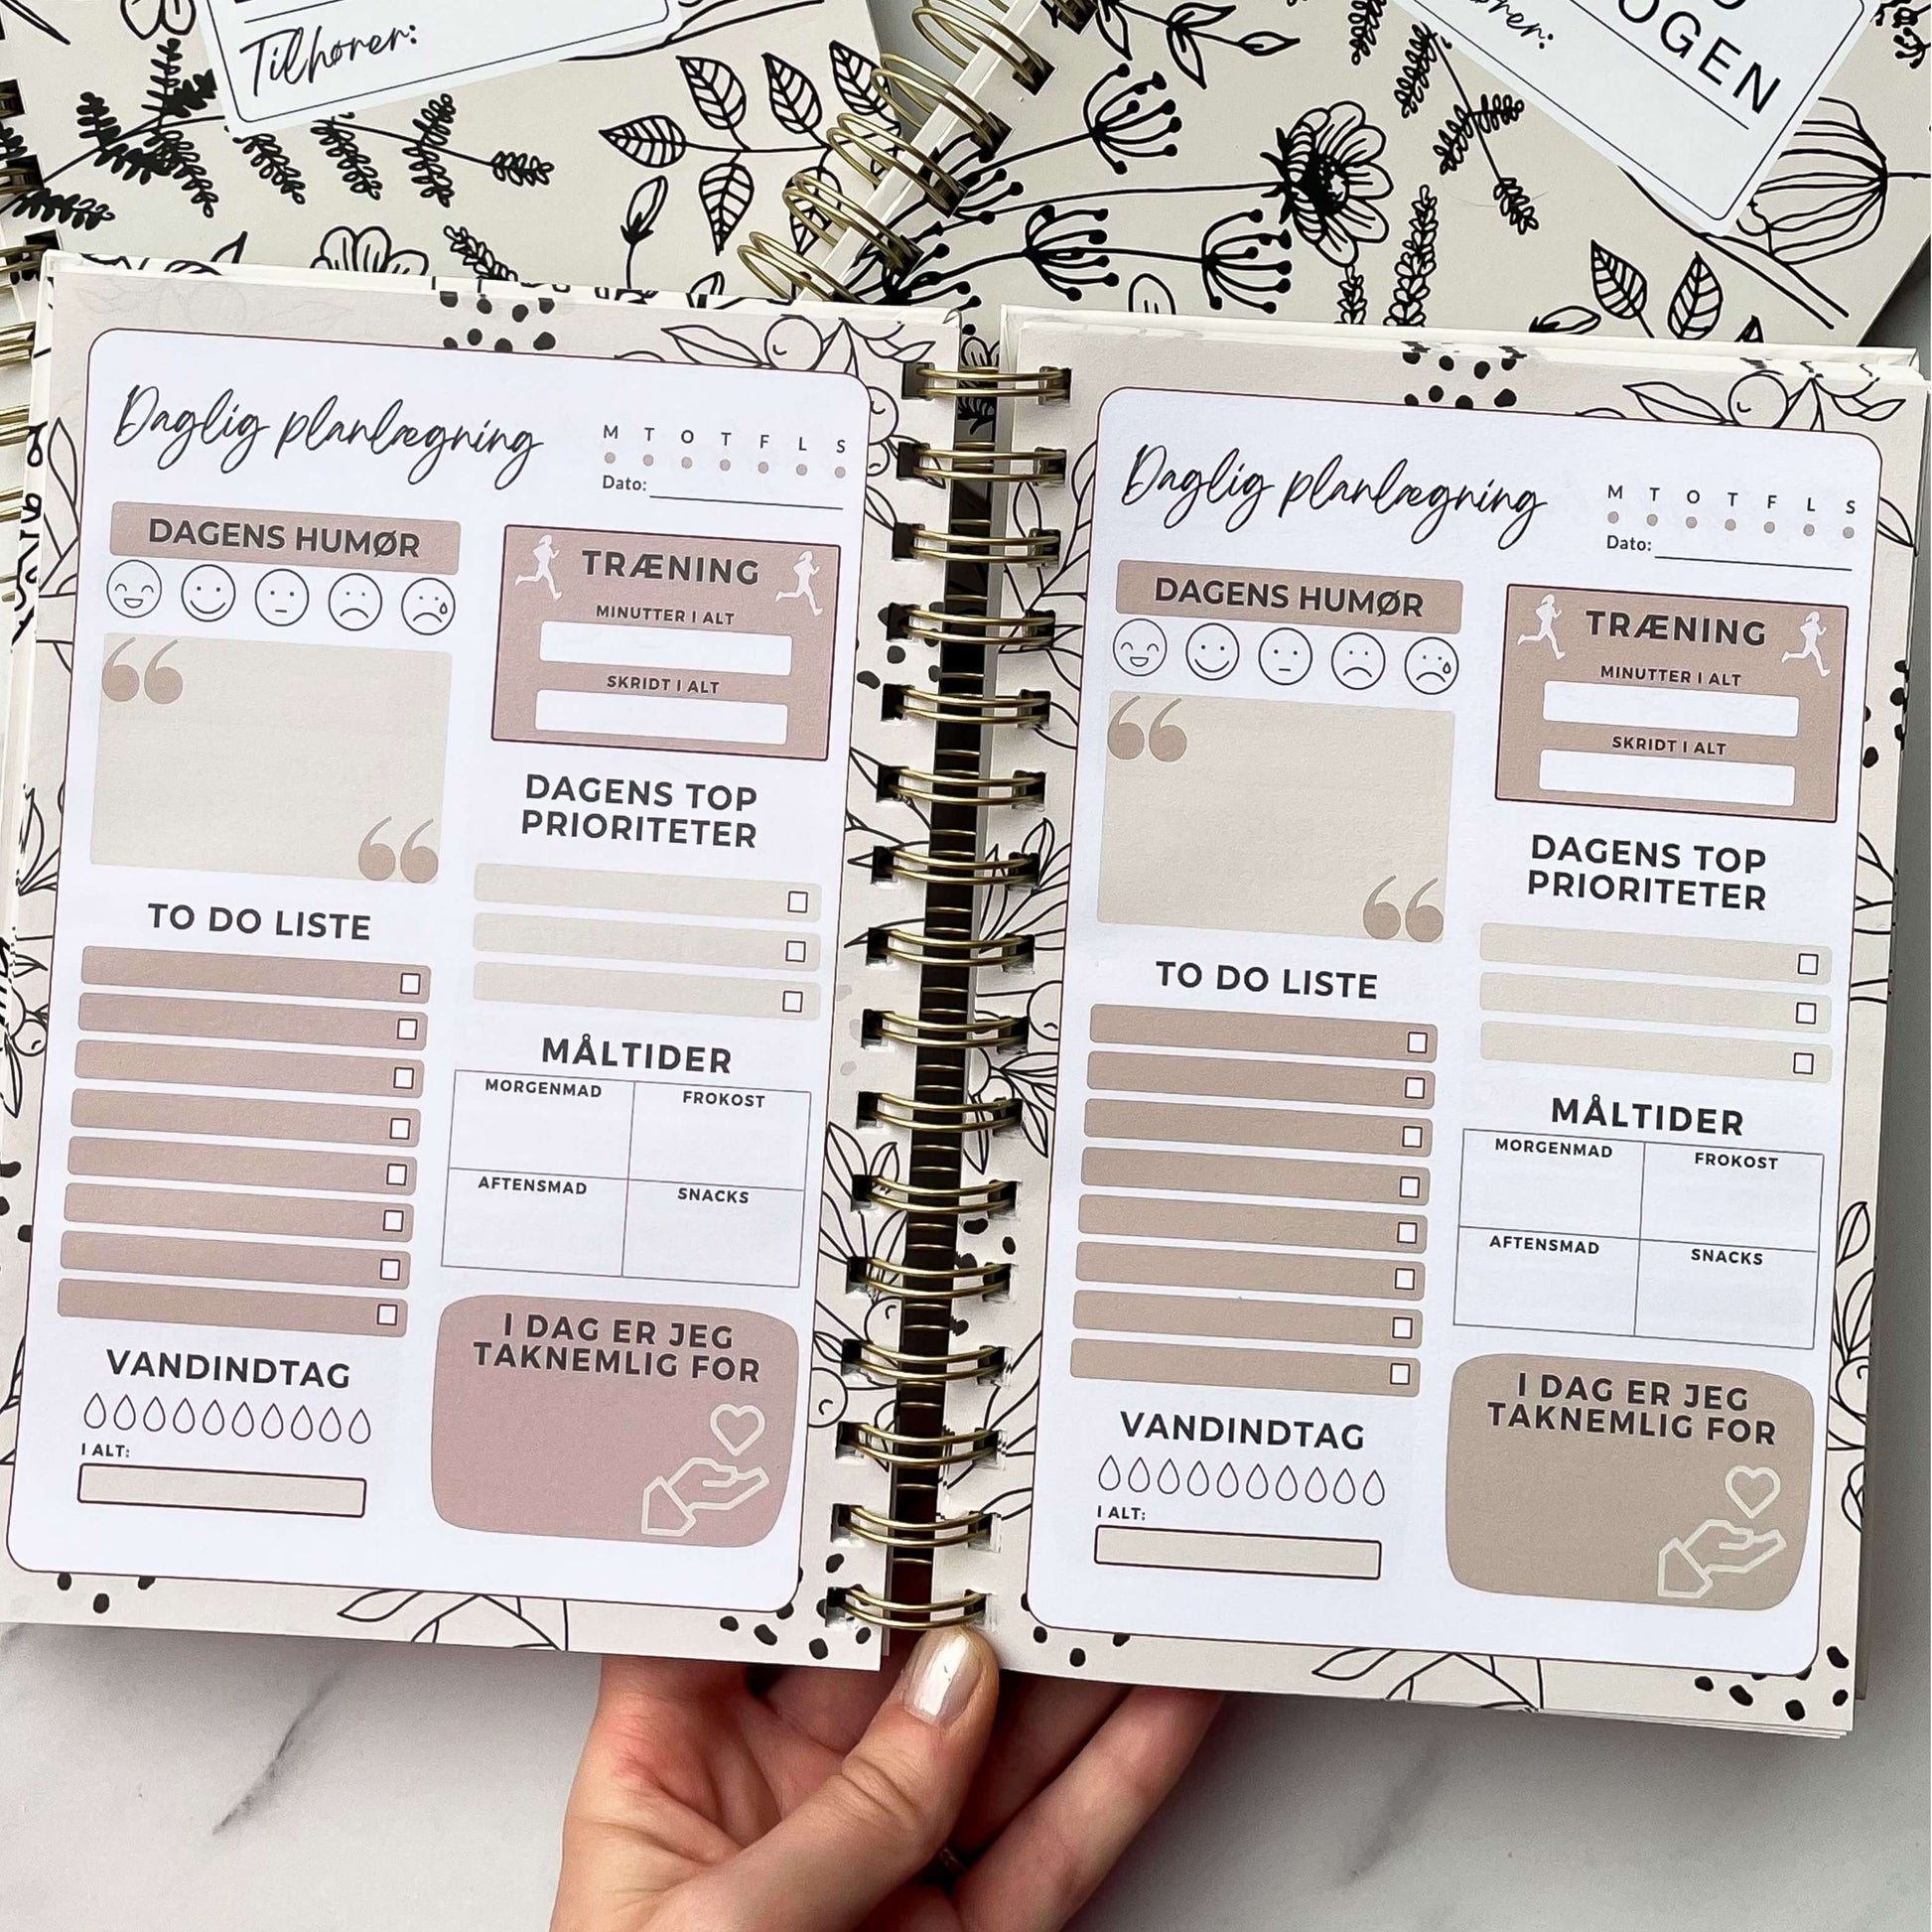 Tilhører:
OGEN
Daglig planlægning
M T O T F L S
Dato:
DAGENS HUMØR
TRÆNING
MINUTTER I ALT
SKRIDT I ALT
DAGENS TOP
PRIORITETER
TO DO LISTE
MÅLTIDER
MORGENMAD FROKOST
AFTENSMAD SNACKS
VANDINDTAG
I ALT:
I DAG ER JEG
TAKNEMLIG FOR
Daglig planlægning
M T O T F L S
Dato:
DAGENS HUMØR
TRÆNING
MINUTTER I ALT
SKRIDT I ALT
DAGENS TOP
PRIORITETER
TO DO LISTE
MÅLTIDER
MORGENMAD FROKOST
AFTENSMAD SNACKS
VANDINDTAG
I ALT:
I DAG ER JEG
TAKNEMLIG FOR